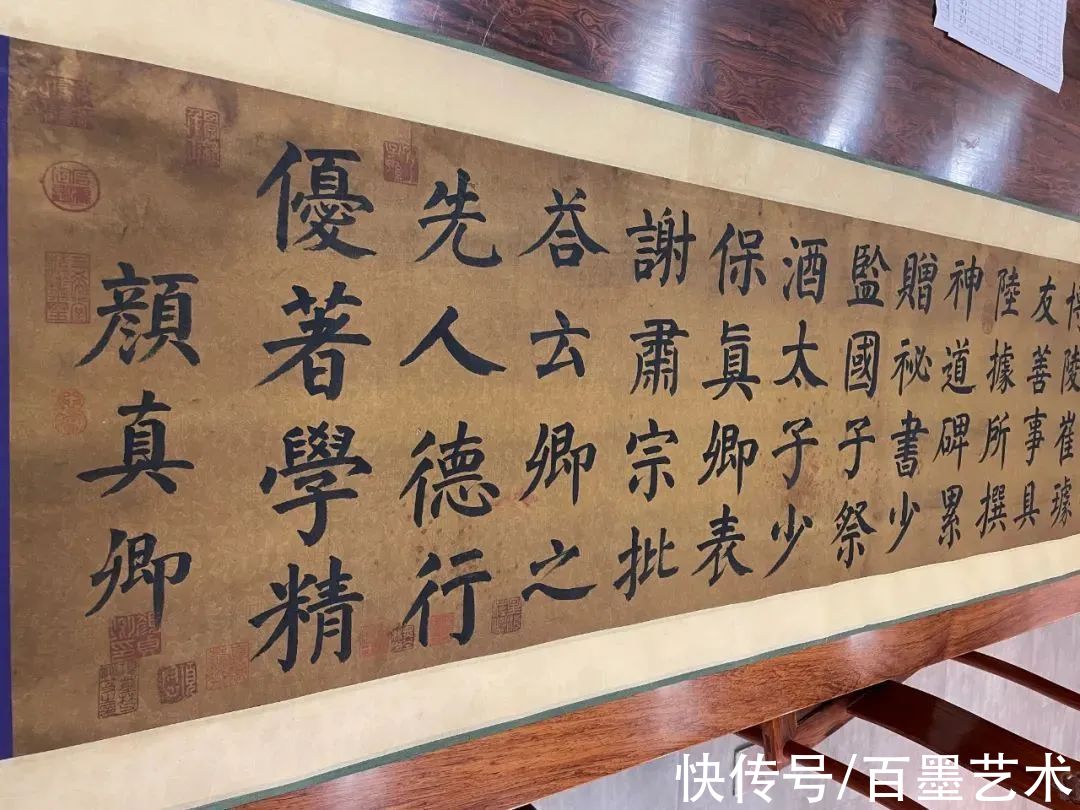 博陵崔璩
友善事具
陸據所撰
神道碑累
贈祕書少
監國子祭
酒太子少
保真卿表
謝肅宗批
荅玄卿之
先人德行
優著學精
顔真卿
快传号/百墨艺术